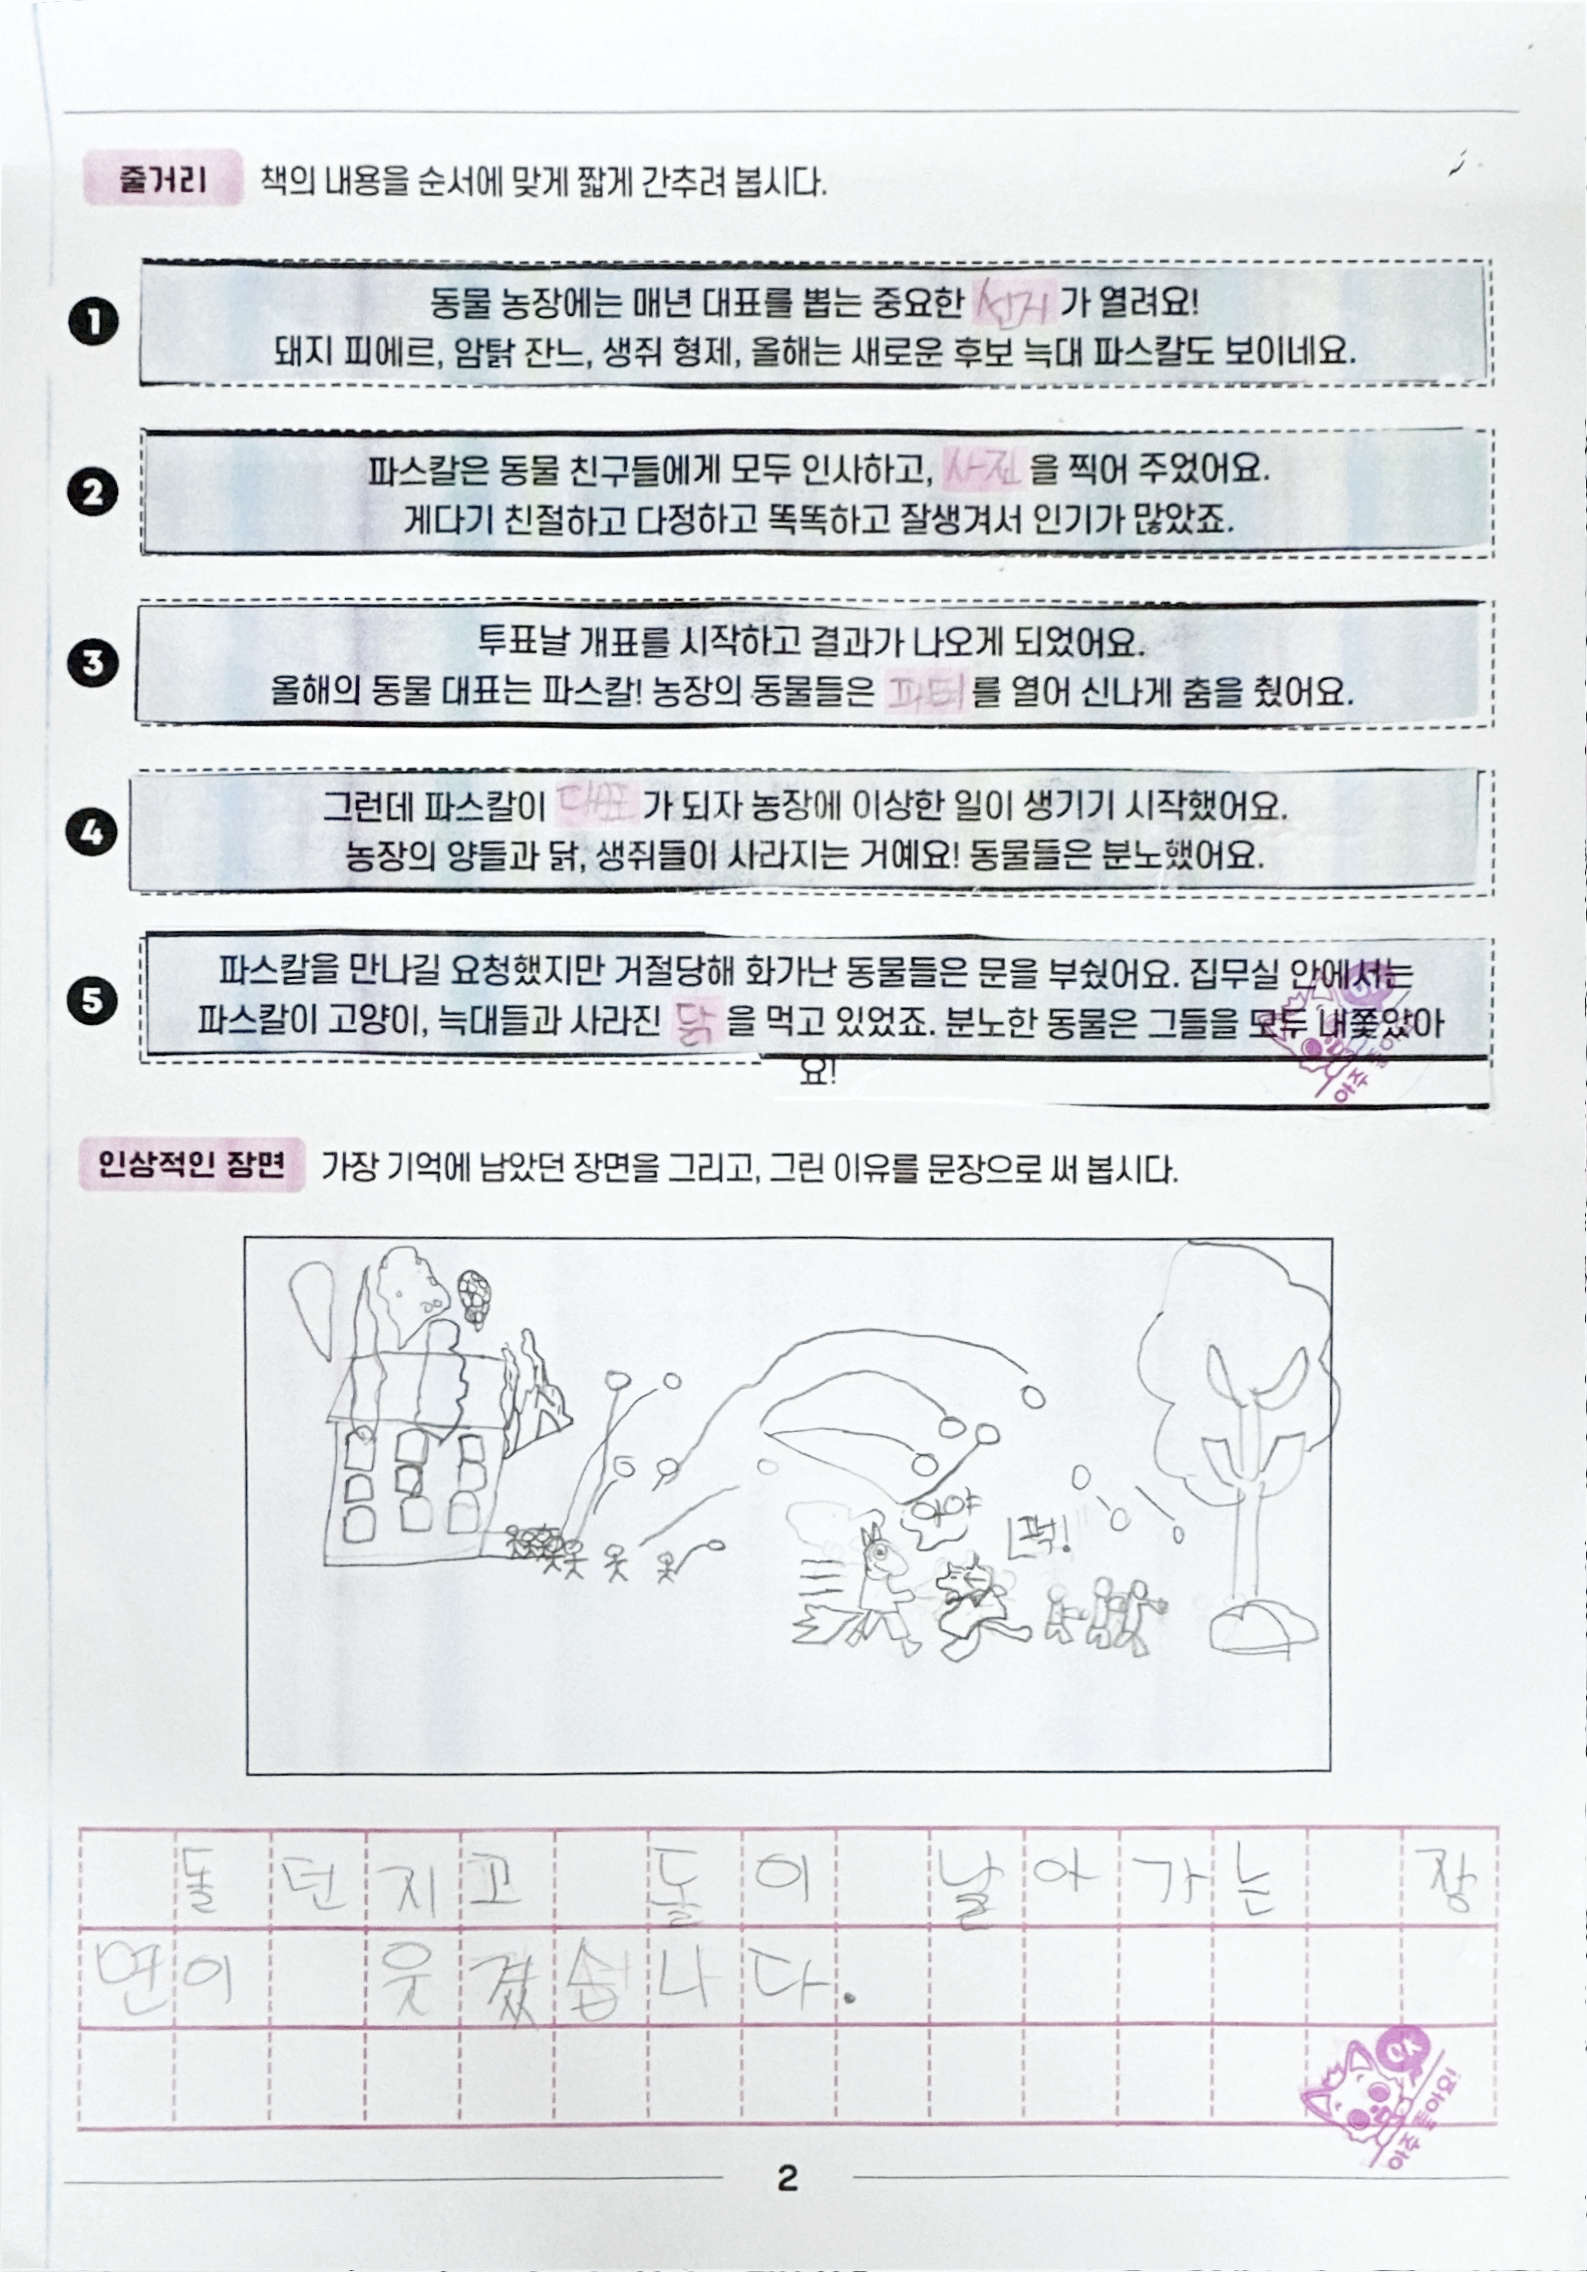 줄거리 책의 내용을 순서에 맞게 짧게 간추려 봅시다.
1 동물 농장에는 매년 대표를 뽑는 중요한 선거가 열려요!
돼지 피에르, 암탉 잔느, 생쥐 형제, 올해는 새로운 후보 늑대 파스칼도 보이네요.
2 파스칼은 동물 친구들에게 모두 인사하고, 사진을 찍어 주었어요.
게다기 친절하고 다정하고 똑똑하고 잘생겨서 인기가 많았죠.
3 투표날 개표를 시작하고 결과가 나오게 되었어요.
올해의 동물 대표는 파스칼! 농장의 동물들은 파티를 열어 신나게 춤을 췄어요.
4 그런데 파스칼이 대표가 되자 농장에 이상한 일이 생기기 시작했어요.
농장의 양들과 닭, 생쥐들이 사라지는 거예요! 동물들은 분노했어요.
5 파스칼을 만나길 요청했지만 거절당해 화가난 동물들은 문을 부쉈어요. 집무실 안에서는
파스칼이 고양이, 늑대들과 사라진 닭을 먹고 있었죠. 분노한 동물은 그들을 모두 내쫓았아
요!
아주 좋아요!
인상적인 장면 가장 기억에 남았던 장면을 그리고, 그린 이유를 문장으로 써 봅시다.
아야
퍽!
돌던지고 돌이 날아가는 장
면이 웃겼습니다.
OK
아주 좋아요!
2